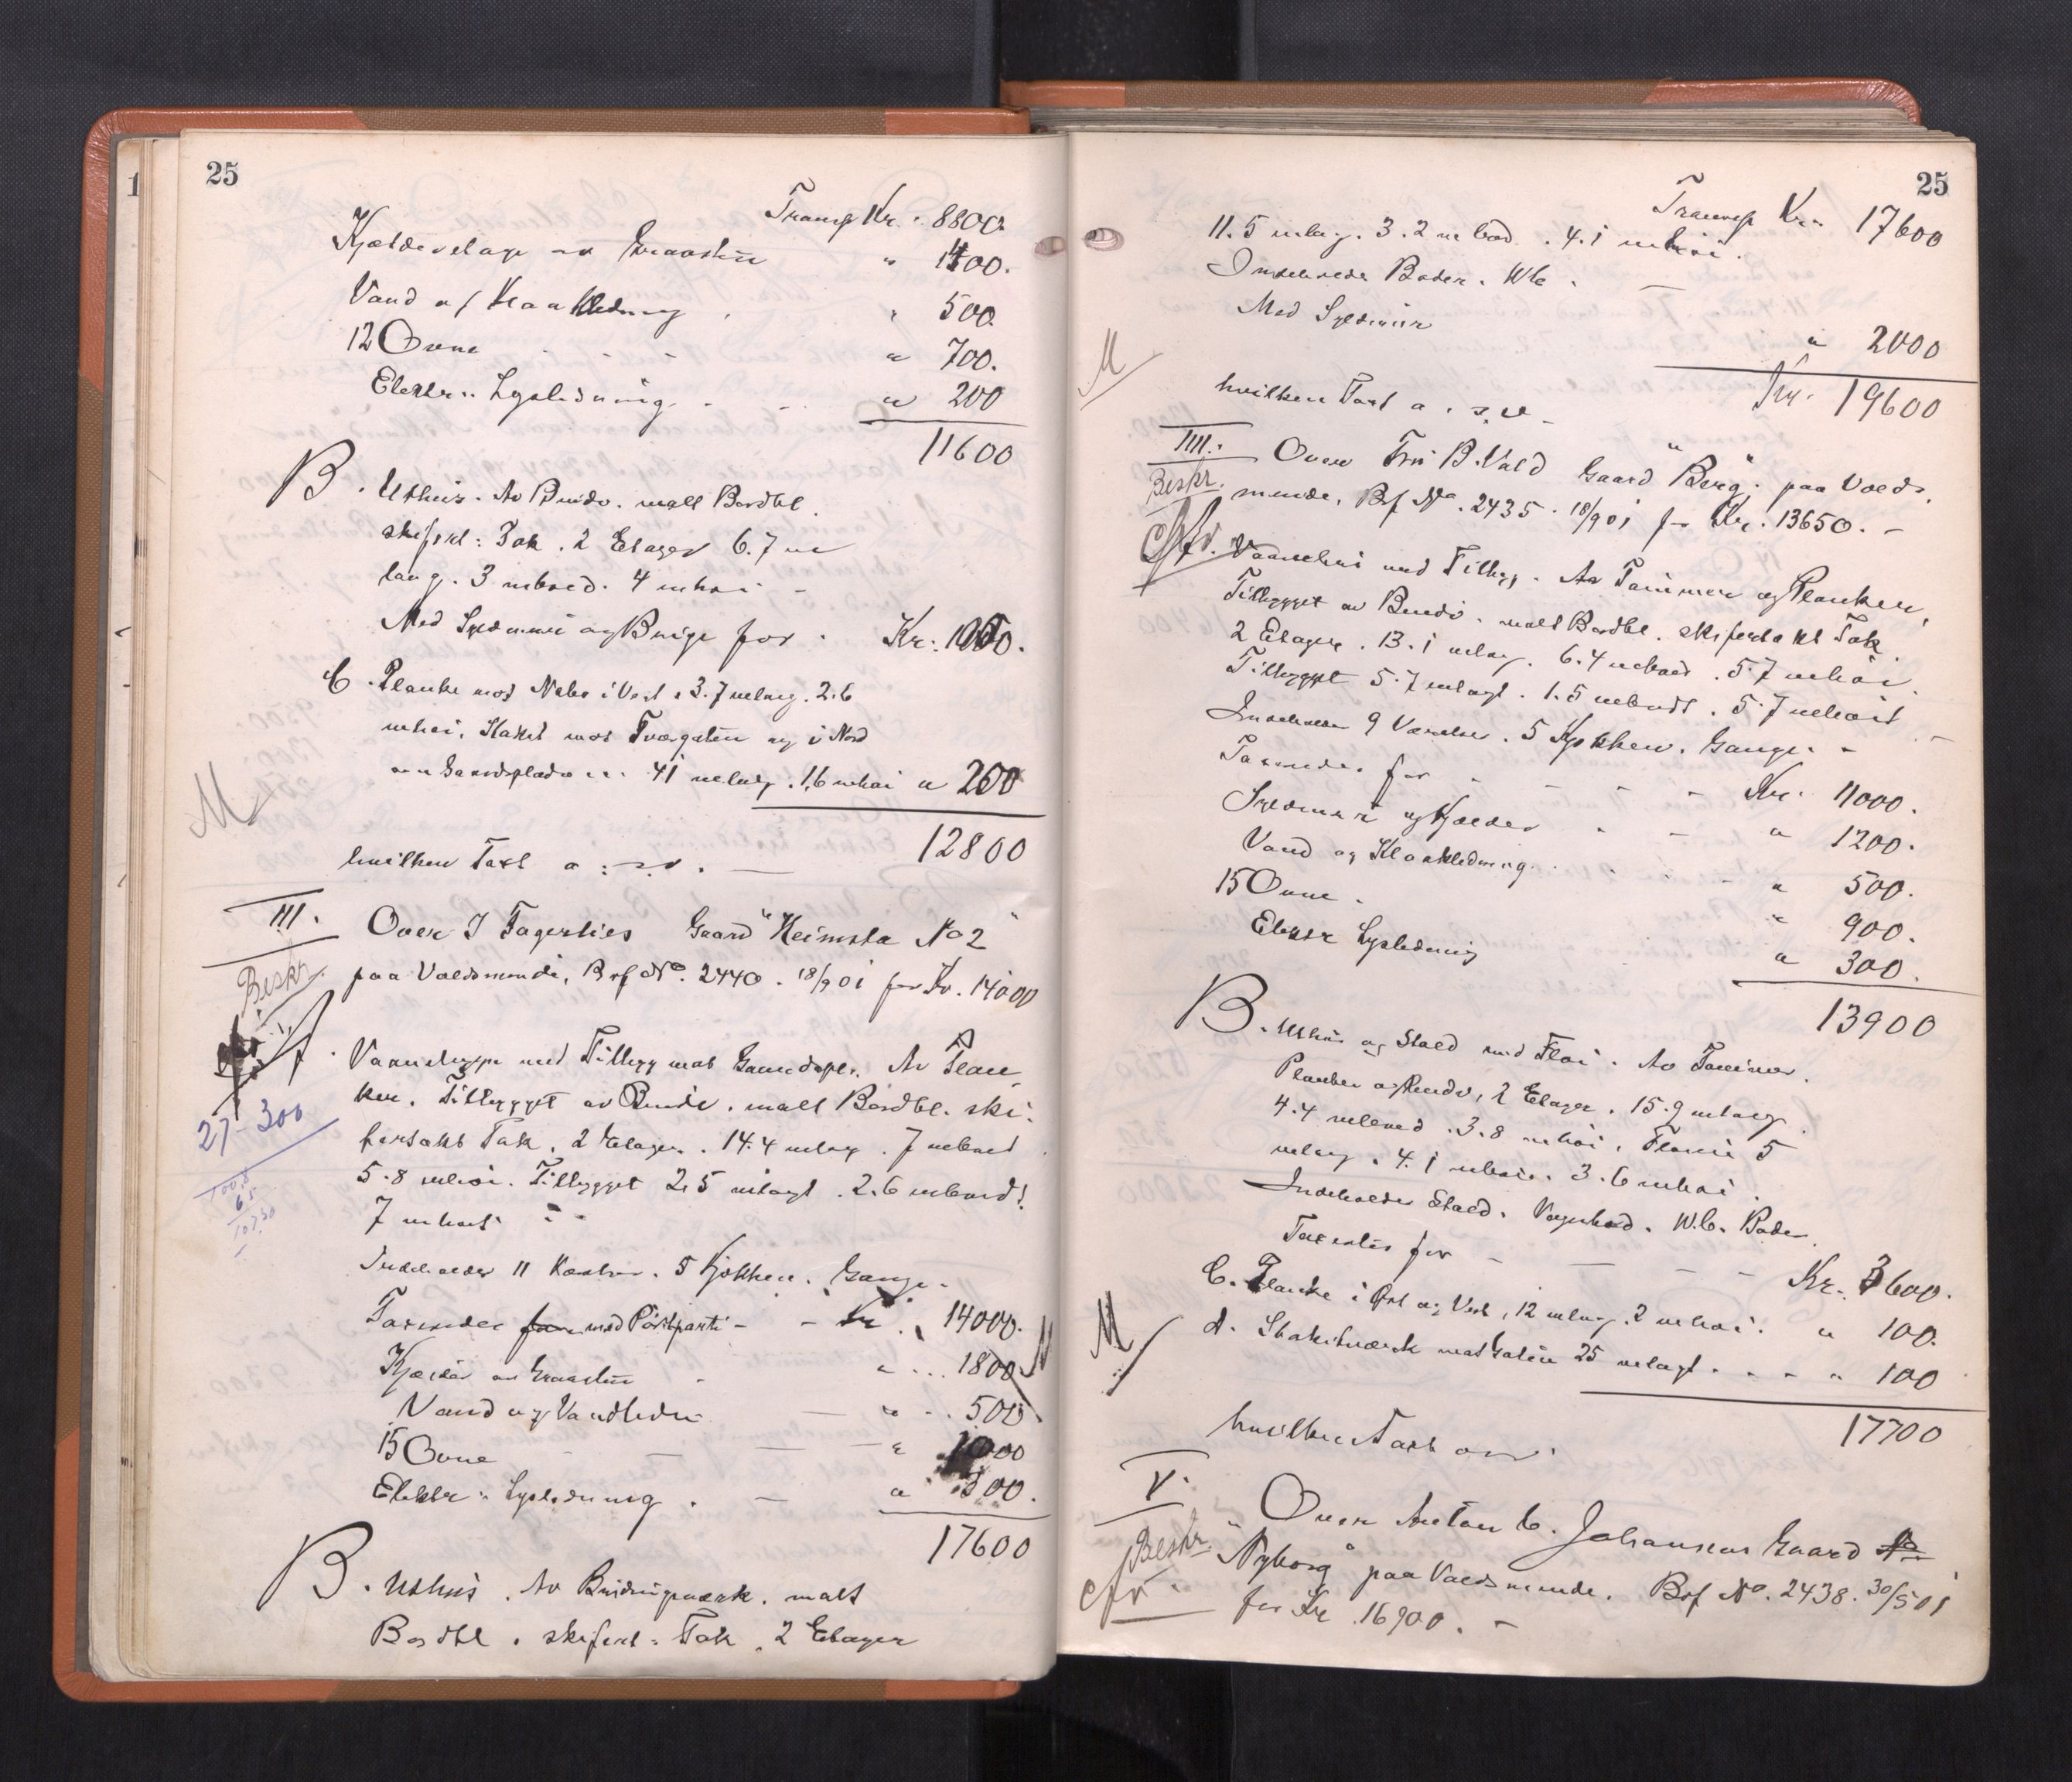 25
Transp Kr. 8800.
Kjelderetage av Graasten " 1400.
Vand og Kloakledning " 500.
12 Ovne " 700.
Elektr. Lysledning " 200
11600
B. Uthus. Av Bindv. malt Bordkl.
skifert: Tak. 2 Etager 6.7 m
lang. 3 m bred. 4 m høi -
Med Syldmur og for Kr. 1000.
C. Planke mot Nabo i Vest 3.7 m lang. 2.6
m høi, Stakit mot Tværgaten og i Nord
Gaardsplads 41 m lang. 1.6 m høi " 200
M
12800
hvilken Taxt o. s. v.
III. Over J Fagerlies Gaard "Heimsta No 2"
Beskr.
paa Voldsminde, Brf No. 2440. 18/9 01 for Kr. 14000
Vaaningen med Tilbygg mot Gaardspl. Av Plan-
ker. Tilbygget av Bindv. malt Bordkl. ski-
27-300
fertækt Tak. 2 Etager. 14.4 m lang. 7 m bred
5.8 m høi. Tilbygget 2.5 m langt. 2.6 m bredt
7 m høit
Indeholder 11 Værelser. 5 Kjøkken. Gange.
Taxeres for med Kr. 14000.
Kjælder av Graasten " 1800
Vand og Vandledn " 500
15 Ovne " 1000
Elektr. Lysledning " 300.
17600
B. Uthus. Av Bindingsværk. malt
Bordkl. skifert: Tak. 2 Etager
25
Transp Kr. 17600
11.5 m lang. 3.2 m bred. 4.1 m høi.
Indeholder Boder. Wc.
Med Syldmur
" 2000
M
Kr. 19600
hvilken Taxt o. s. v.
IIII. Over Fru B. Vold Gaard "Berg", paa Volds-
Beskr.
minde, Brf No. 2435. 18/9 01 for Kr. 13650. -
Cfr. Vaaningshus med Tilbygg. Av Tømmer og Planker,
Tilbygget av Bindv. malt Bordkl. skifertækt Tak.
2 Etager. 13.1 m lang. 6.4 m bred. 5.7 m høi.
Tilbygget 5.7 m langt. 1.5 m bredt. 5.7 m høit
Indeholder 9 Værelser. 5 Kjøkken. Gange.
Taxeres for Kr. 11000.
Syldmur og Kjælder " 1200.
Vand og Kloakledning " 500.
15 Ovne " 900.
Elektr Lysledning " 300.
13900
B. Uthus og Stald med Fløi. Av Tømmer.
Planker og Bindv, 2 Etager. 15.9 m lang
4.4 m bred. 3.8 m høi. Fløien 5
m lang. 4.1 m bred. 3.6 m høi.
Indeholder Stald. Vognbod. W.C. Boder.
Taxeres for Kr. 3600.
C. Planke i Øst og Vest, 12 m lang. 2 m høi. " 100.
M
d. Stakitværk mot Gaten 25 m langt " 100
17700
hvilken Taxt osv.
V.
Over Anton C. Johansens Gaard
Beskr.
"Nyborg" paa Voldsminde. Brf No. 2438. 30/5 01
Cfr.
for Kr 16900. -